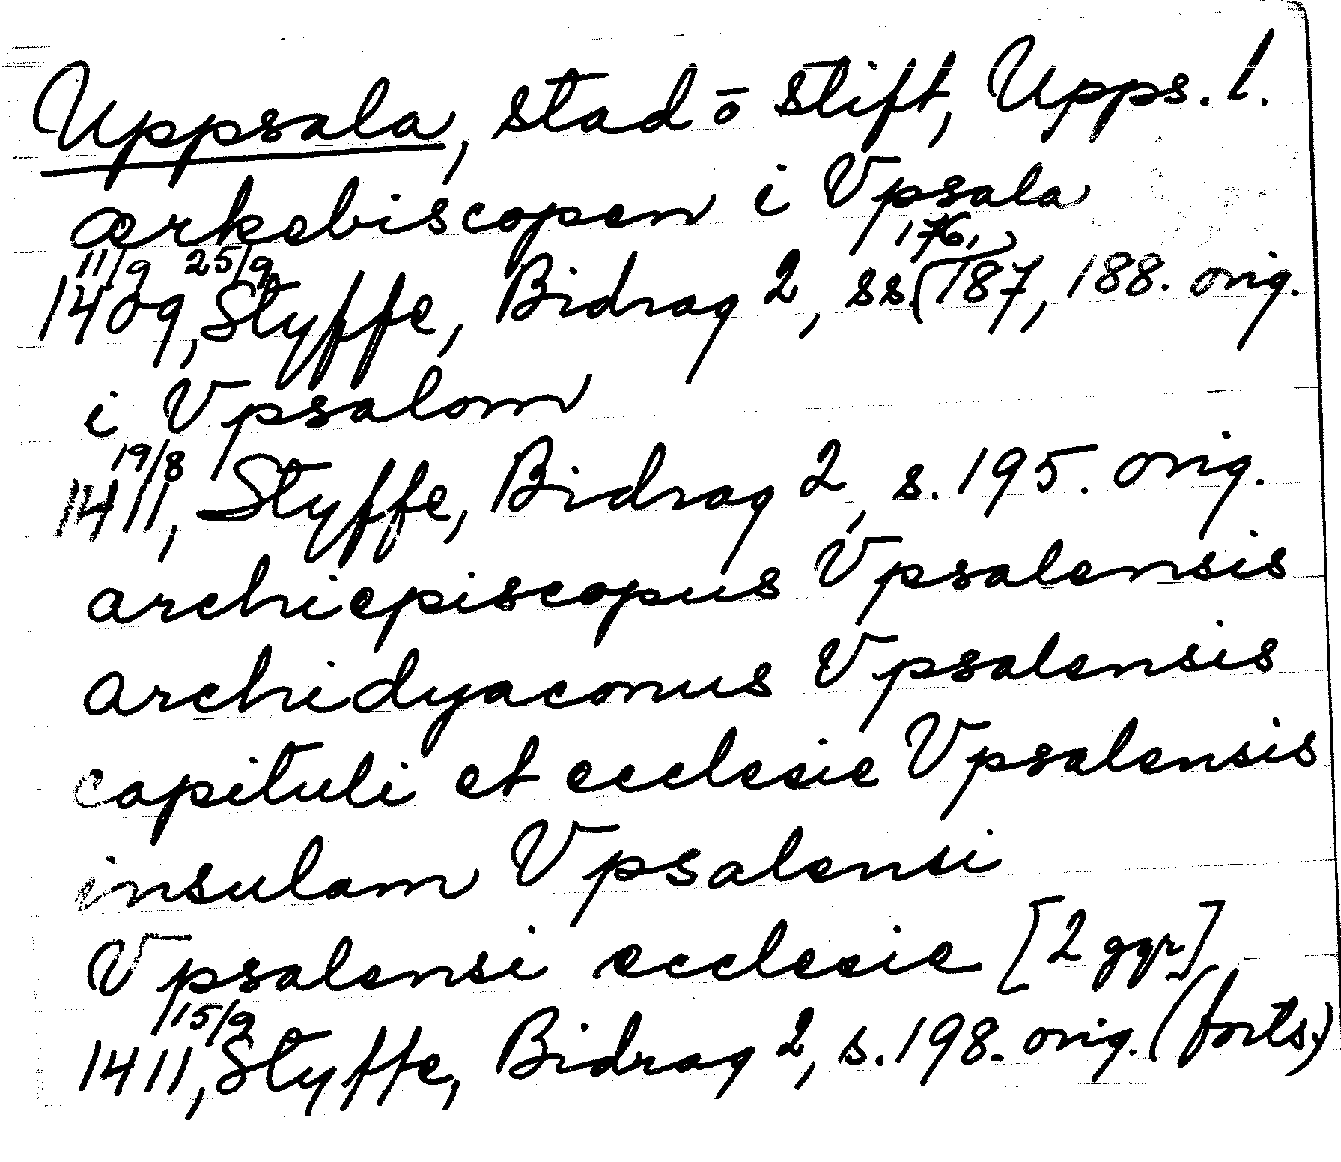 Uppsala, stad o stift, Upps. l.
ærkebiscopen i Vpsala
11/9 25/9 176,
1409, Styffe, Bidrag 2, ss. (187, 188. orig.
i Vpsalom
19/8
1411, Styffe, Bidrag 2, s. 195. orig.
archiepiscopus Vpsalensis
archidyaconus Vpsalensis
capituli et ecclesie Vpsalensis
insulam Vpsalensi
Vpsalensi ecclesie [2 ggr]
15/9
1411, Styffe, Bidrag 2, s. 198. orig. (forts.)